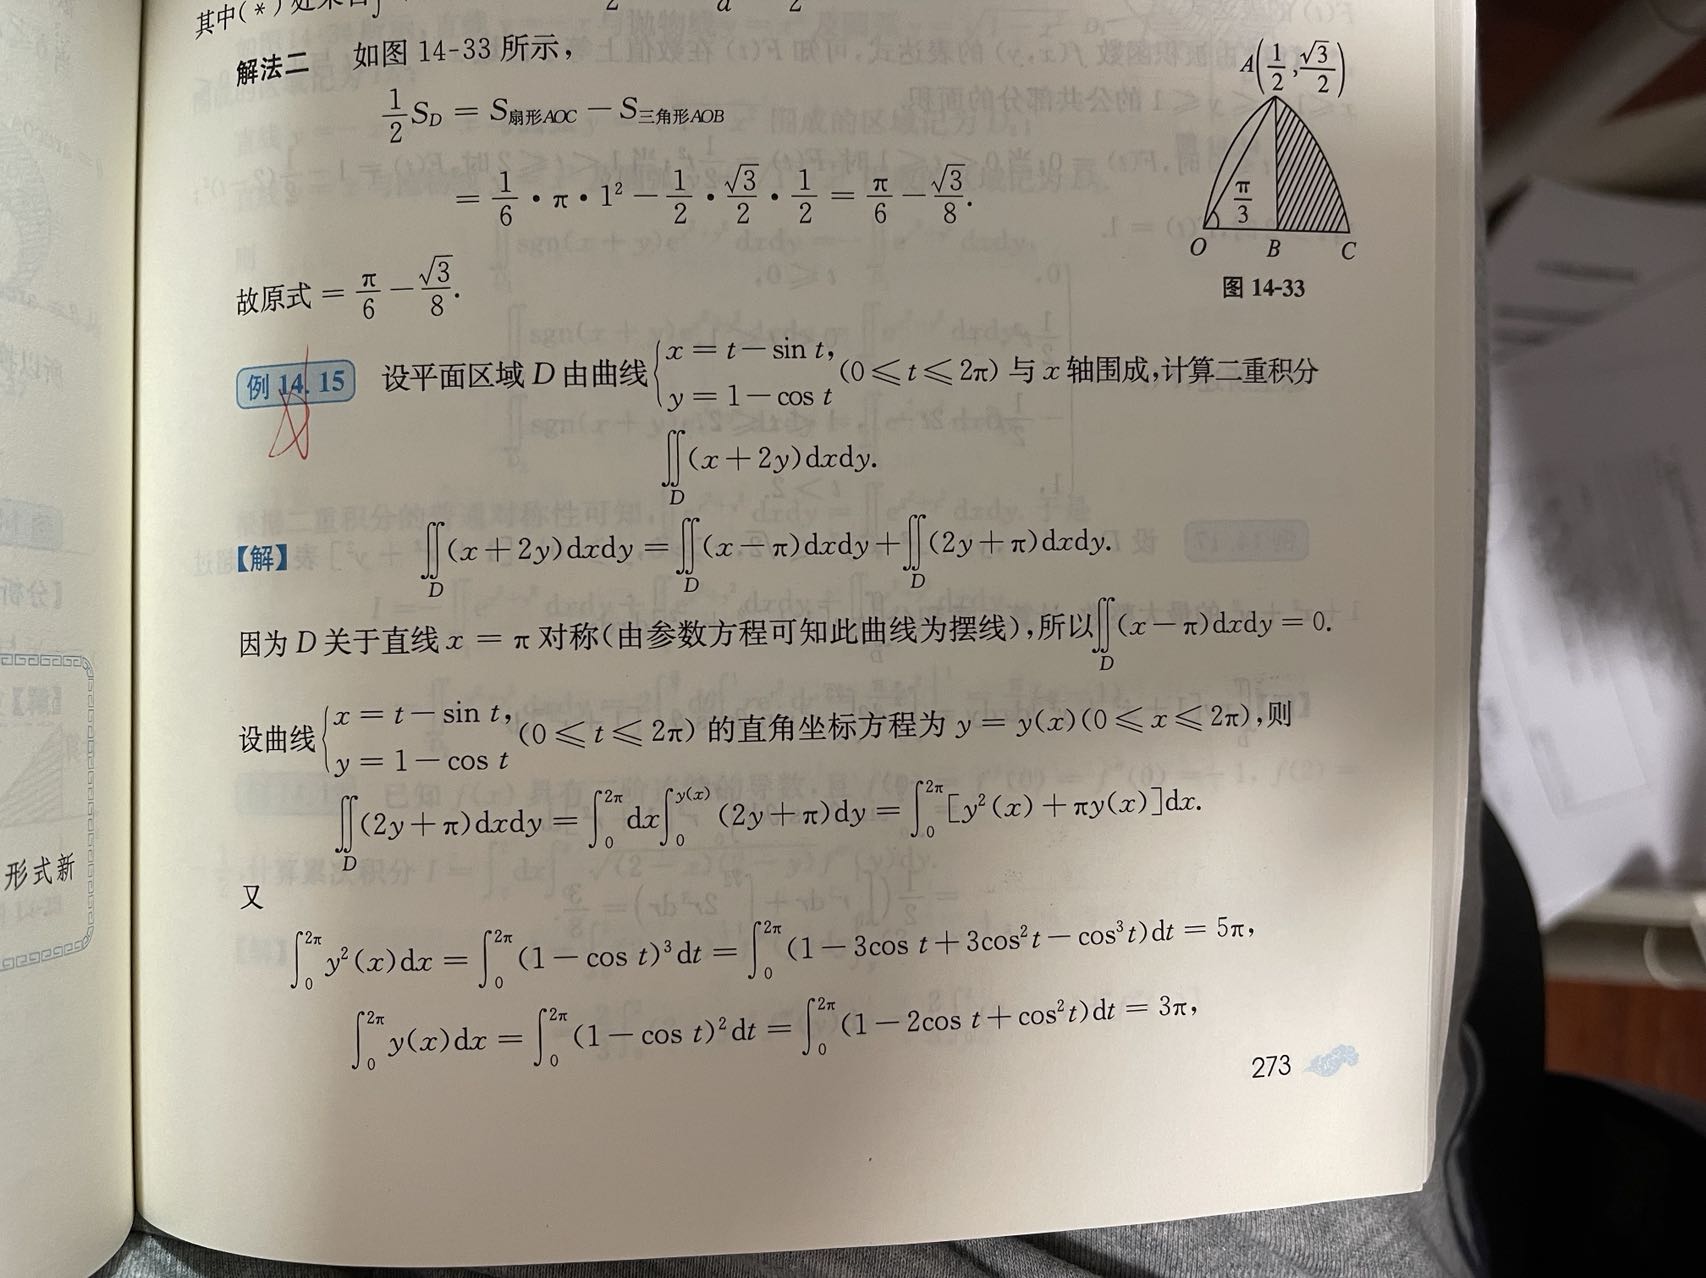 其中(*)处来自
解法二 如图 14-33 所示,
$\frac{1}{2}S_D = S_{扇形AOC} - S_{三角形AOB}$
$= \frac{1}{6} \cdot π \cdot 1^2 - \frac{1}{2} \cdot \frac{\sqrt{3}}{2} \cdot \frac{1}{2} = \frac{π}{6} - \frac{\sqrt{3}}{8}.$
故原式 $= \frac{π}{6} - \frac{\sqrt{3}}{8}.$
$A\left(\frac{1}{2}, \frac{\sqrt{3}}{2}\right)$
$\frac{π}{3}$
O B C
图 14-33
例 14.15 设平面区域 D 由曲线 $\begin{cases} x = t - \sin t, \\ y = 1 - \cos t \end{cases}$ (0 ≤ t ≤ 2π) 与 x 轴围成,计算二重积分
$\iint_D (x + 2y)dxdy.$
【解】 $\iint_D (x + 2y)dxdy = \iint_D (x - π)dxdy + \iint_D (2y + π)dxdy.$
因为 D 关于直线 x = π 对称(由参数方程可知此曲线为摆线),所以 $\iint_D (x - π)dxdy = 0.$
设曲线 $\begin{cases} x = t - \sin t, \\ y = 1 - \cos t \end{cases}$ (0 ≤ t ≤ 2π) 的直角坐标方程为 y = y(x)(0 ≤ x ≤ 2π),则
$\iint_D (2y + π)dxdy = \int_0^{2π} dx \int_0^{y(x)} (2y + π)dy = \int_0^{2π} [y^2(x) + πy(x)]dx.$
又
$\int_0^{2π} y^2(x)dx = \int_0^{2π} (1 - \cos t)^3 dt = \int_0^{2π} (1 - 3\cos t + 3\cos^2 t - \cos^3 t)dt = 5π,$
$\int_0^{2π} y(x)dx = \int_0^{2π} (1 - \cos t)^2 dt = \int_0^{2π} (1 - 2\cos t + \cos^2 t)dt = 3π,$
273
形式新